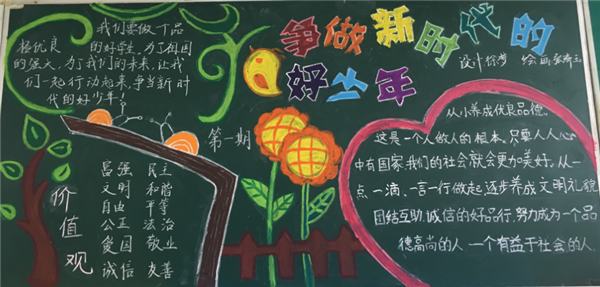 我们要做一个品
格优良的好学生,为了祖国
的强大,为了我们的未来,让我
们一起行动起来,争当新时
代的好少年!
争做新时代的
好少年
设计 绘画
第一期
价值观
富强 民主
文明 和谐
自由 平等
公正 法治
爱国 敬业
诚信 友善
从小养成优良品德,
这是一个人做人的根本。只要人人心
中有国家,我们的社会就会更加美好。从一
点一滴,一言一行做起,逐步养成文明礼貌
团结互助,诚信的好品行,努力成为一个品
德高尚的人,一个有益于社会的人.